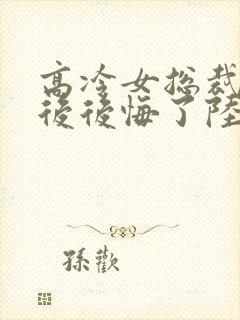 高冷女总裁
後後悔了陸
孫歡